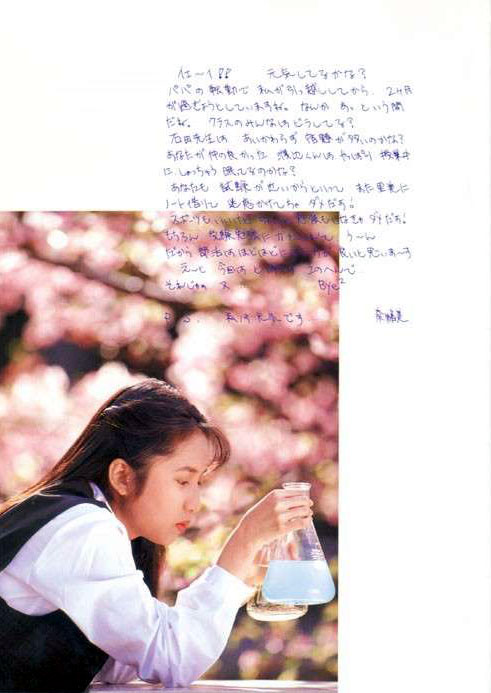 は〜い!! 元気してるかな?
パパの転勤で 私が引っ越ししてから、2ヶ月
が過ぎようとしていますね。なんか あっという間
だね。クラスのみんなはどうしてる?
石田先生は あいかわらず 宿題が多いのかな?
あなたが仲の良かった くんは やっぱり 授業中
に しょっちゅう 眠ってるのかな?
あなたも 試験が近いからといって また里美に
ノート借りて 迷惑かけてちゃ ダメだぞ!
スポーツも いいけど 勉強もしなきゃ ダメだぞ!
もちろん 受験
だから 部活はほどほどに 良いと思いま〜す
え〜と 今回は このへんで
それじゃぁ Bye²
P.S. 私は元気です